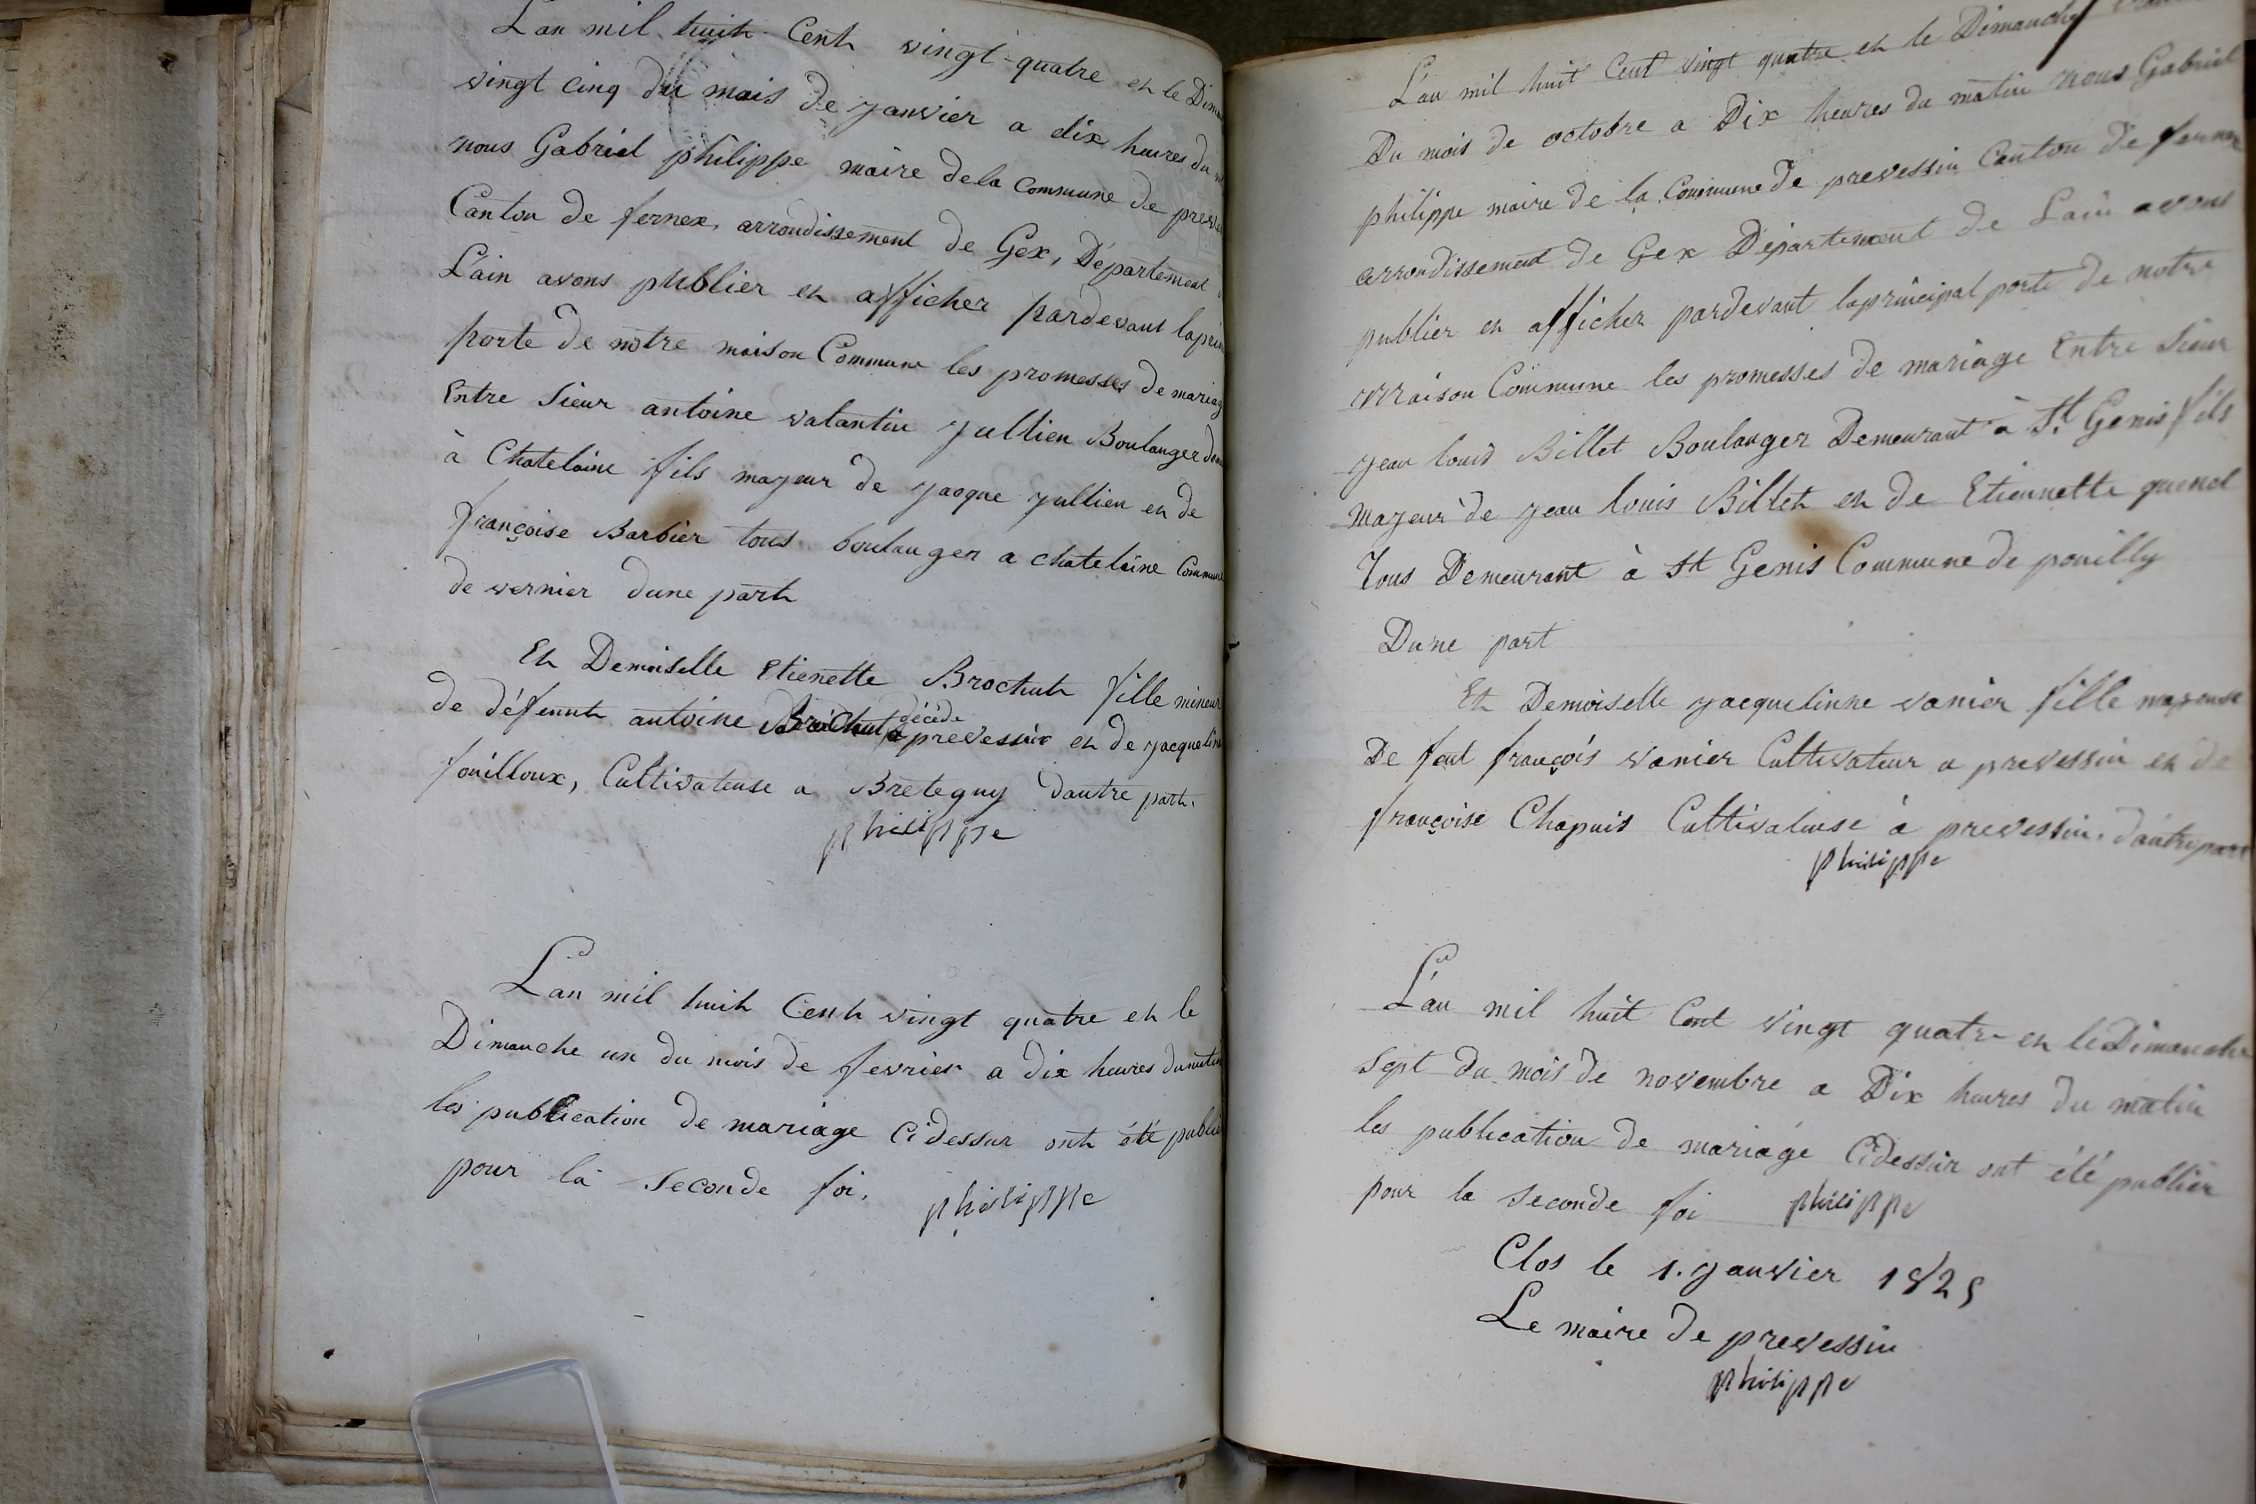 L'an mil huit Cent vingt-quatre et le
vingt cinq du mois de janvier a dix heures du
nous Gabriel philippe maire de la Commune de
Canton de fernex, arrondissement de Gex, Département
L'ain avons publier et afficher pardevant la
porte de notre maison Commune les promesses de
Entre Sieur antoine valantin jullien Boulanger
à Chatelaine fils majeur de jacque jullien et de
françoise Barbier tous boulanger a chatelaine
de vernier dune part
Et Demoiselle Etienette Brochut fille
décédé
de défunt antoine Brochut a prevessin et de
fouilloux, Cultivateuse a Breteguy dautre part.
philippe
L'an mil huit Cent vingt quatre et le
Dimanche un du mois de fevrier a dix heures du matin
les publication de mariage Cidessur ont été
pour la seconde foi. philippe
L'an mil huit Cent vingt quatre et le Dimanche
Du mois de octobre a Dix heures du matin nous Gabriel
philippe maire de la Commune de prevessin Canton de
arrondissement de Gex Département de Lain avons
publier et afficher pardevant la principal porte de notre
maison Commune les promesses de mariage Entre Sieur
jean louis Billet Boulanger Demeurant à St Genis fils
majeur de jean louis Billet et de Etiennette
Tous Demeurant à St Genis Commune de pouilly
Dune part
Et Demoiselle jacquelinne vanier fille majeuse
De feu françois vanier Cultivateur a prevessin et de
françoise Chapuis Cultivateuse à prevessin. d'autre part
philippe
L'an mil huit Cent vingt quatre et le Dimanche
sept du mois de novembre a Dix heures du matin
les publication de mariage Cidessur ont été publier
pour la seconde foi philippe
Clos le 1. janvier 1825
Le maire de prevessin
philippe